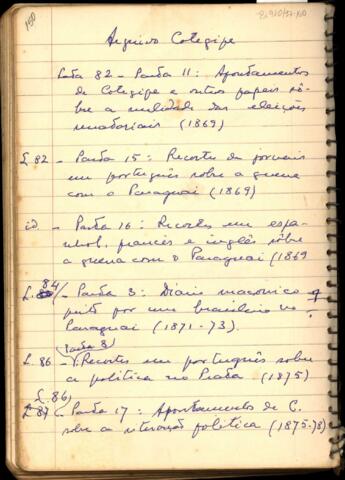 150
Arquivo Cotegipe
Lata 82 - Pasta 11: Apontamentos
de Cotegipe e outros papeis sô-
bre a nulidade das eleições
senatoriais (1869)
L. 82 - Pasta 15: Recortes de jornais
em português sobre a guerra
com o Paraguai (1869)
id - Pasta 16: Recortes em espa-
nhol, francês e inglês sôbre
a guerra com o Paraguai (1869
L. 84 - Pasta 3: Diário maçonico
feito por um brasileiro no
Paraguai (1871-73).
(Pasta 8)
L. 86 - Recortes em português sobre
a politica no Prata (1875)
(L. 86)
L. 87 - Pasta 17: Apontamentos de C.
sobre a situação politica (1875-78)